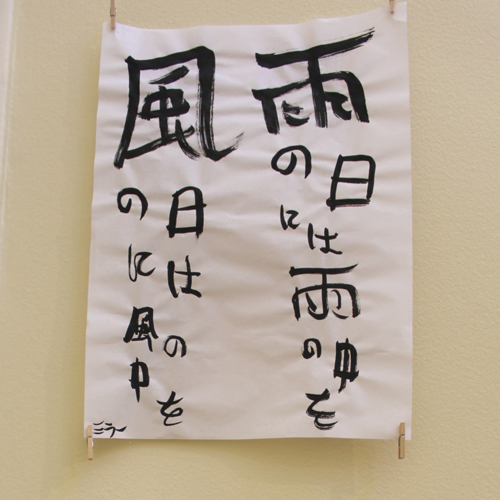 雨の日には雨の中を
風の日には風の中を
ミラー